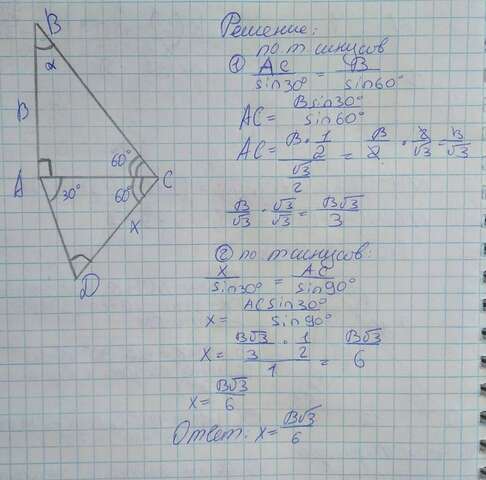 B
α
B
60°
A
30°
60°
C
x
D
Решение:
по т синусов
① AC/sin30° = B/sin60°
AC = Bsin30°/sin60°
AC = (B · 1/2)/(√3/2) = B/2 · 2/√3 = B/√3
B/√3 · √3/√3 = B√3/3
② по т синусов:
x/sin30° = AC/sin90°
x = ACsin30°/sin90°
x = (B√3/3 · 1/2)/1 = B√3/6
x = B√3/6
Ответ: x = B√3/6